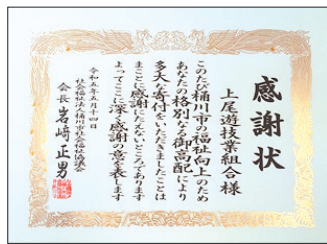 感謝状
上尾遊技業組合様
このたび桶川市の福祉向上のため
あなたの格別なる御高配により
多大な寄付をいただきましたことは
まことに感謝にたえないところであります
よってここに深く感謝の意を表します
令和五年五月十四日
社会福祉法人桶川市社会福祉協議会
会長 岩崎正男